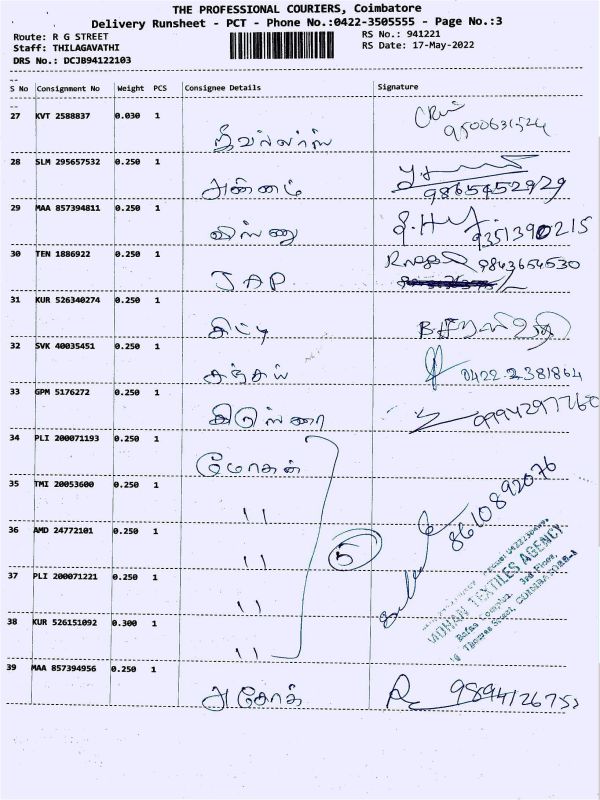 THE PROFESSIONAL COURIERS, Coimbatore
Delivery Runsheet - PCT - Phone No.:0422-3505555 - Page No.:3
Route: R G STREET
RS No.: 941221
Staff: THILAGAVATHI
RS Date: 17-May-2022
DRS No.: DCJB94122103
S No Consignment No Weight PCS Consignee Details Signature
27 KVT 2588837 0.030 1
28 SLM 295657532 0.250 1
அன்னம் 9865452929
29 MAA 857394811 0.250 1
விஸ்ணு 9351390215
30 TEN 1886922 0.250 1
JAP 9843654530
31 KUR 526340274 0.250 1
32 SVK 40035451 0.250 1
சஞ்சய் 0422-2381864
33 GPM 5176272 0.250 1
34 PLI 200071193 0.250 1
மோகன்
35 TMI 20053600 0.250 1
"
36 AMD 24772101 0.250 1
"
5
8610892076
37 PLI 200071221 0.250 1
"
MOHAN TEXTILES AGENCY
3rd Floor,
38 KUR 526151092 0.300 1
"
39 MAA 857394956 0.250 1
அசோக்